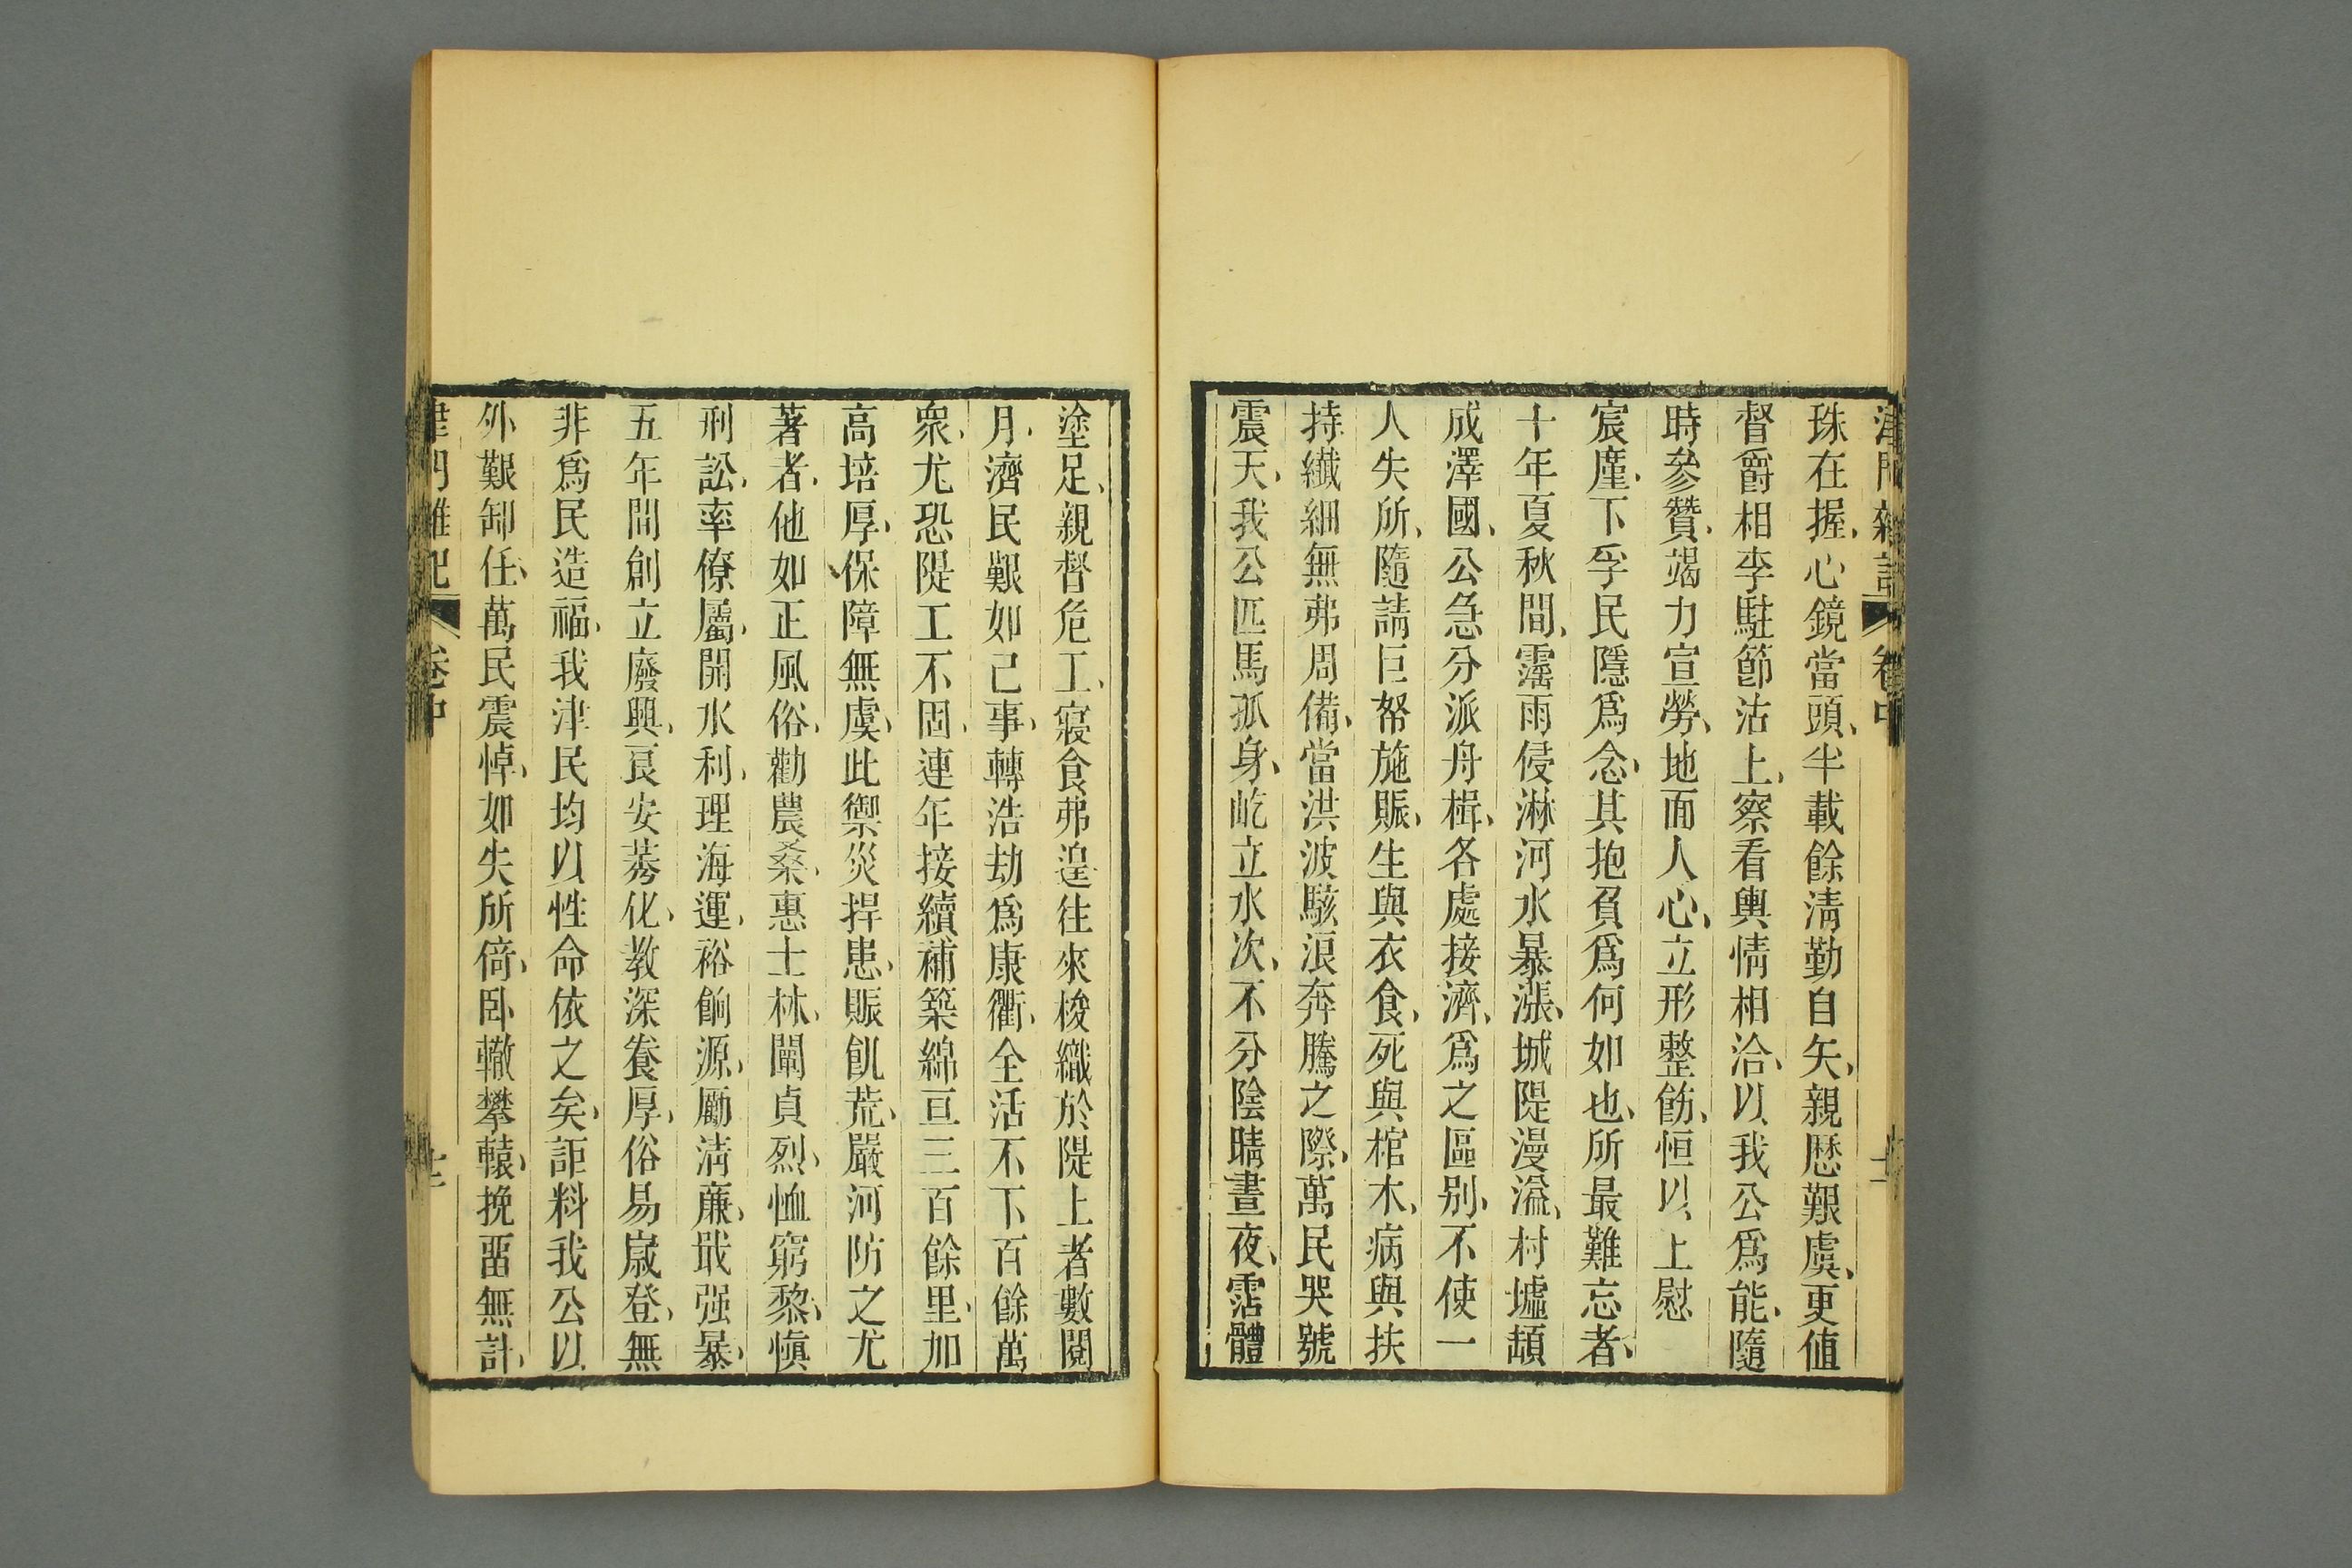 津門雜記 卷中
珠在握、心鏡當頭、半載餘淸勤自矢、親歷艱虞、更値
督爵相李駐節沽上、察看輿情相洽、以我公爲能、隨
時參贊、竭力宣勞、地面人心、立形整飭、恒以上慰
宸廑、下孚民隱爲念、其抱負爲何如也、所最難忘者、
十年夏秋間、霪雨侵淋、河水暴漲、城隄漫溢、村墟頓
成澤國、公急分派舟楫、各處接濟、爲之區別、不使一
人失所、隨請巨帑施賑、生與衣食、死與棺木、病與扶
持、纖細無弗周備、當洪波駭浪奔騰之際、萬民哭號
震天、我公匹馬孤身、屹立水次、不分陰晴晝夜、霑體
塗足、親督危工、寢食弗遑、往來梭織於隄上者數閱
月、濟民艱如己事、轉浩劫爲康衢、全活不下百餘萬
衆、尤恐隄工不固、連年接續補築、綿亘三百餘里、加
高培厚、保障無虞、此禦災捍患、賑飢荒、嚴河防之尤
著者、他如正風俗、勸農桑、惠士林、闡貞烈、恤窮黎、愼
刑訟、率僚屬、開水利、理海運、裕餉源、勵淸廉、戢强暴、
五年間創立廢興、良安莠化、敎深養厚、俗易歲登、無
非爲民造福、我津民均以性命依之矣、詎料我公以
外艱卸任、萬民震悼、如失所倚、臥轍攀轅、挽畱無計、
津門雜記 卷中